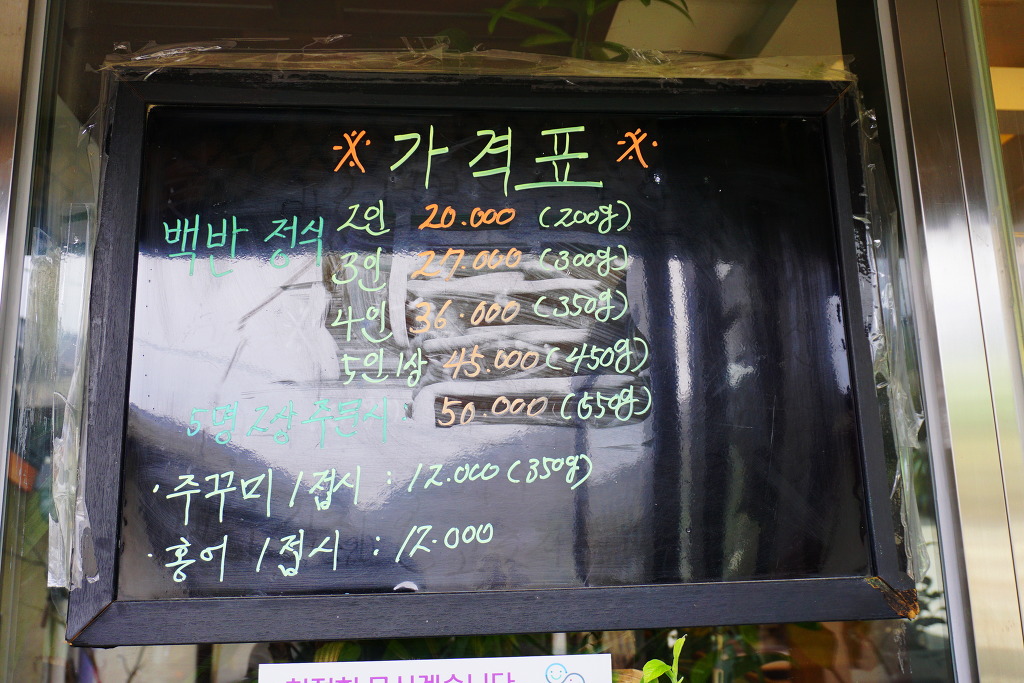 ※ 가격표 ※
백반 정식 2인 20.000 (200g)
3인 27.000 (300g)
4인 36.000 (350g)
5인 1상 45.000 (450g)
5명 2상 주문시 : 50.000 (550g)
· 주꾸미 1접시 : 12.000 (350g)
· 홍어 1접시 : 12.000